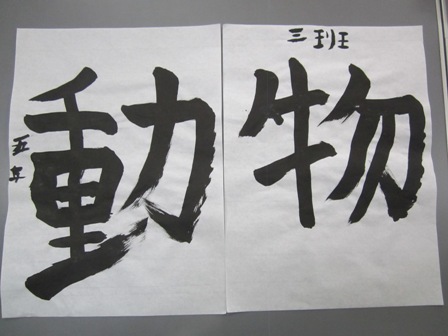 動物
五年
三班